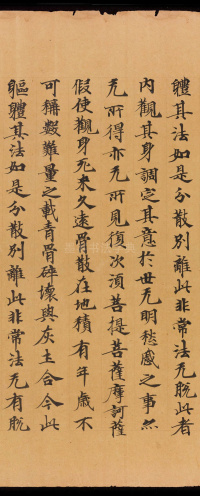 軆其法如是分散別離此非常法无脱此者
内觀其身調定其意於世无明愁慼之事然
无所得亦无所見復次湏菩提菩薩摩訶薩
假使觀身死来久遠骨散在地積有年歲不
可稱數難量之載青骨碎壞與灰土合今此
軀軆其法如是分散別離此非常法无有脱